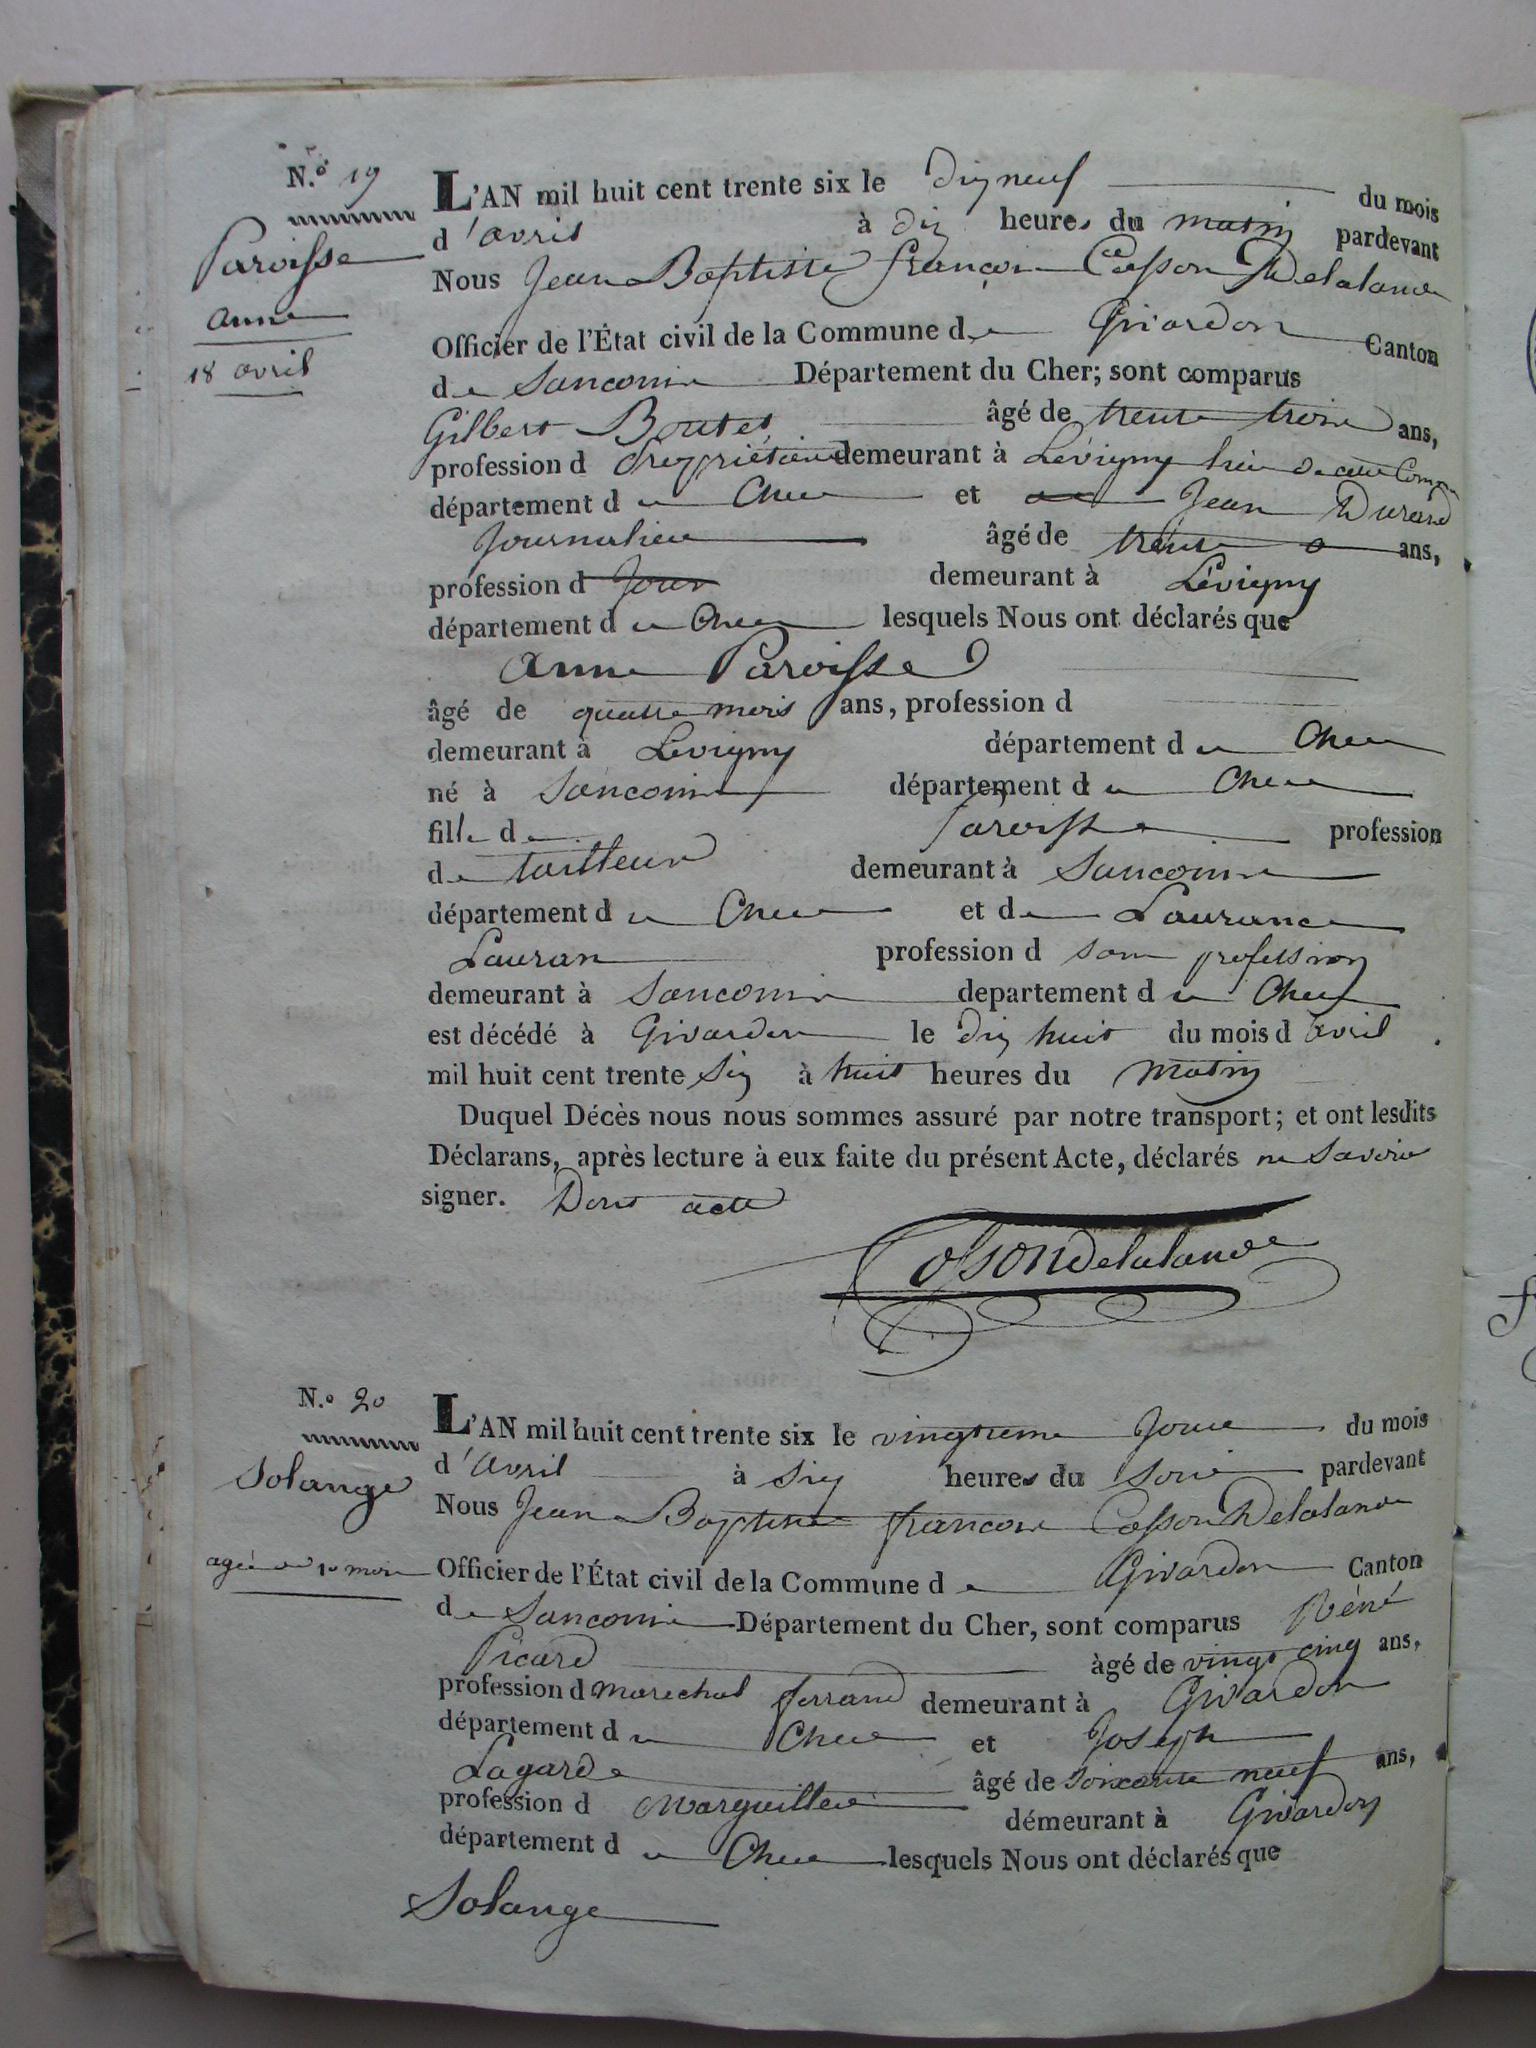 N.o 19
Paroisse
Anne
18 avril
L'AN mil huit cent trente six le dix neuf du mois
d'avril à dix heures du matin pardevant
Nous Jean Baptiste françois Cosson Delalande
Officier de l'État civil de la Commune de Givardon Canton
de Sancoins Département du Cher; sont comparus
Gilbert Boutet âgé de trente trois ans,
profession d propriétaire demeurant à Lévigny lieu de cette Comne
département du Cher et Jean Durand
Journalier âgé de trente ans,
profession d Jour demeurant à Lévigny
département du Cher lesquels Nous ont déclarés que
Anne Paroisse
âgé de quatre mois ans, profession d
demeurant à Lévigny département du Cher
né à Sancoins département du Cher
fille de Paroisse profession
de tailleur demeurant à Sancoins
département du Cher et de Laurance
Lauran profession d sans profession
demeurant à Sancoins departement du Cher
est décédé à Givardon le dix huit du mois d avril
mil huit cent trente six à huit heures du matin
Duquel Décès nous nous sommes assuré par notre transport; et ont lesdits
Déclarans, après lecture à eux faite du présent Acte, déclarés ne savoir
signer. Dont acte
CossonDelalande
N.o 20
Solange
agée de 10 mois
L'AN mil huit cent trente six le vingtieme Jour du mois
d'Avril à six heures du soir pardevant
Nous Jean Baptiste françois Cosson Delalande
Officier de l'État civil de la Commune de Givardon Canton
de Sancoins Département du Cher, sont comparus Réné
Picard âgé de vingt cinq ans,
profession d marechal ferrand demeurant à Givardon
département du Cher et Joseph
Lagarde âgé de soixante neuf ans,
profession d Marguillier démeurant à Givardon
département du Cher lesquels Nous ont déclarés que
Solange